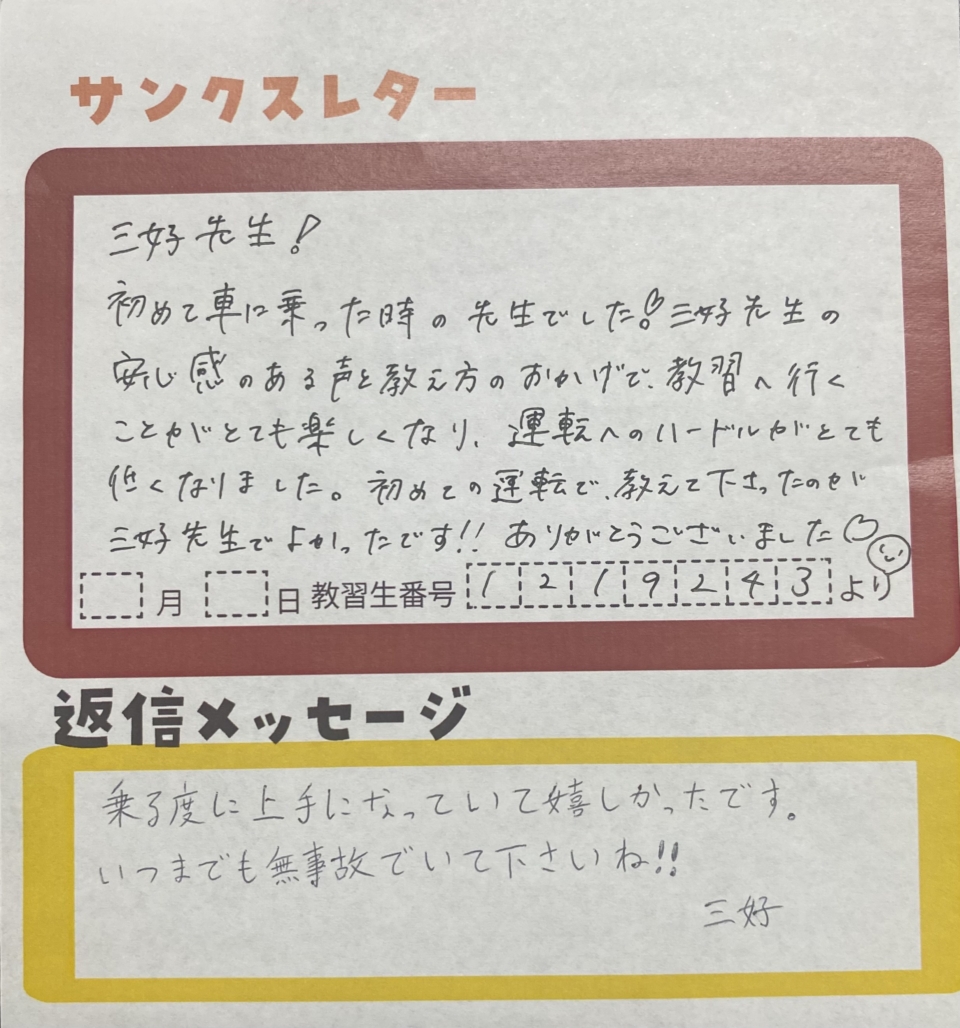 サンクスレター
三好先生!
初めて車に乗った時の先生でした!三好先生の
安心感のある声と教え方のおかげで、教習へ行く
ことがとても楽しくなり、運転へのハードルがとても
低くなりました。初めての運転で、教えて下さったのが
三好先生でよかったです!!ありがとうございました♡
月 日 教習生番号 1219243 より
返信メッセージ
乗る度に上手になっていて嬉しかったです。
いつまでも無事故でいて下さいね!!
三好